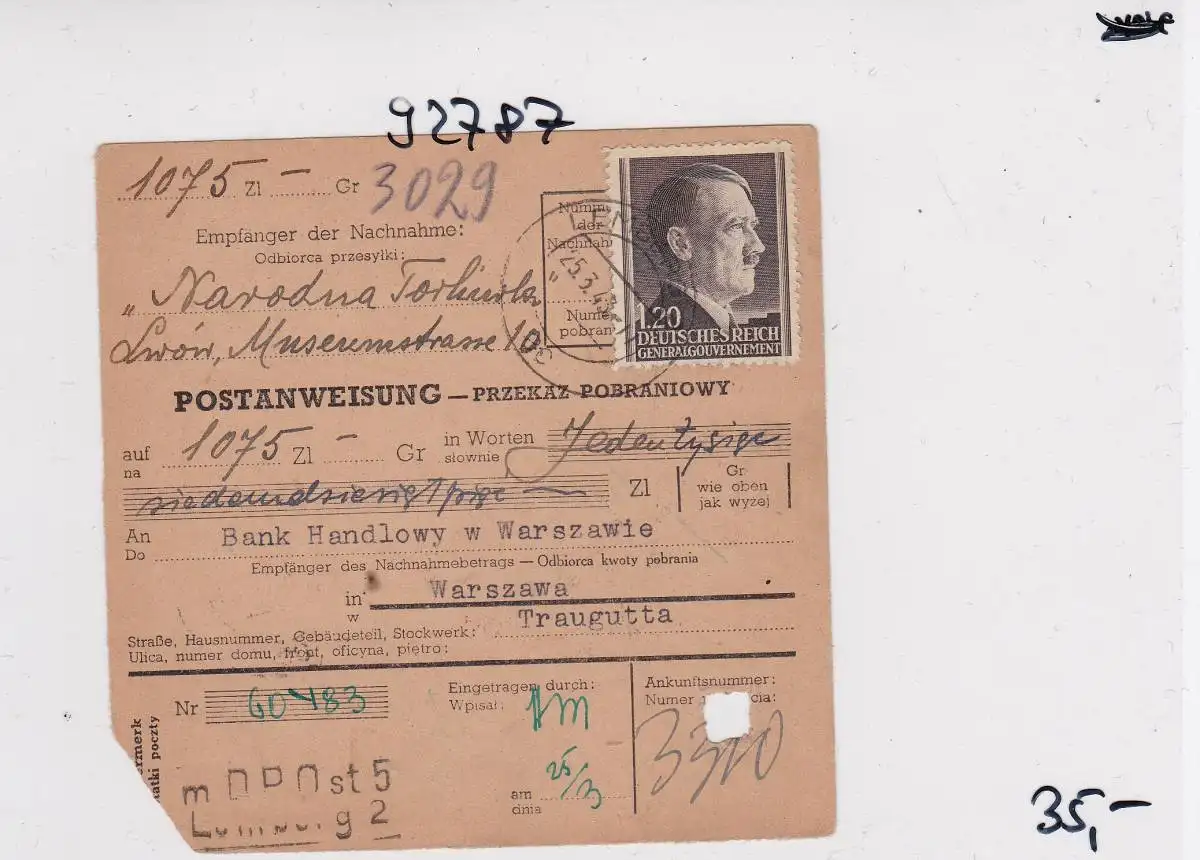 92787
1075 Zl — Gr 3029
Empfänger der Nachnahme:
Odbiorca przesyłki:
„Narodna
Lwów, Museumstrasse 10
Numm
der
Nachnah
Nume
pobran
25.3.43
1.20
DEUTSCHES REICH
GENERALGOUVERNEMENT
POSTANWEISUNG — PRZEKAZ POBRANIOWY
auf 1075 Zl — Gr in Worten Jedentysiąc
na słownie
siedemdziesiąt pięć — Zl
Gr
wie oben
jak wyżej
An Bank Handlowy w Warszawie
Do
Empfänger des Nachnahmebetrags — Odbiorca kwoty pobrania
in Warszawa
w Traugutta
Straße, Hausnummer, Gebäudeteil, Stockwerk:
Ulica, numer domu, front, oficyna, piętro:
Nr 60483
Eingetragen durch:
Wpisał:
am 25/3
dnia
Ankunftsnummer:
Numer cia:
3310
ermerk
atki poczty
st 5
g 2
35,-